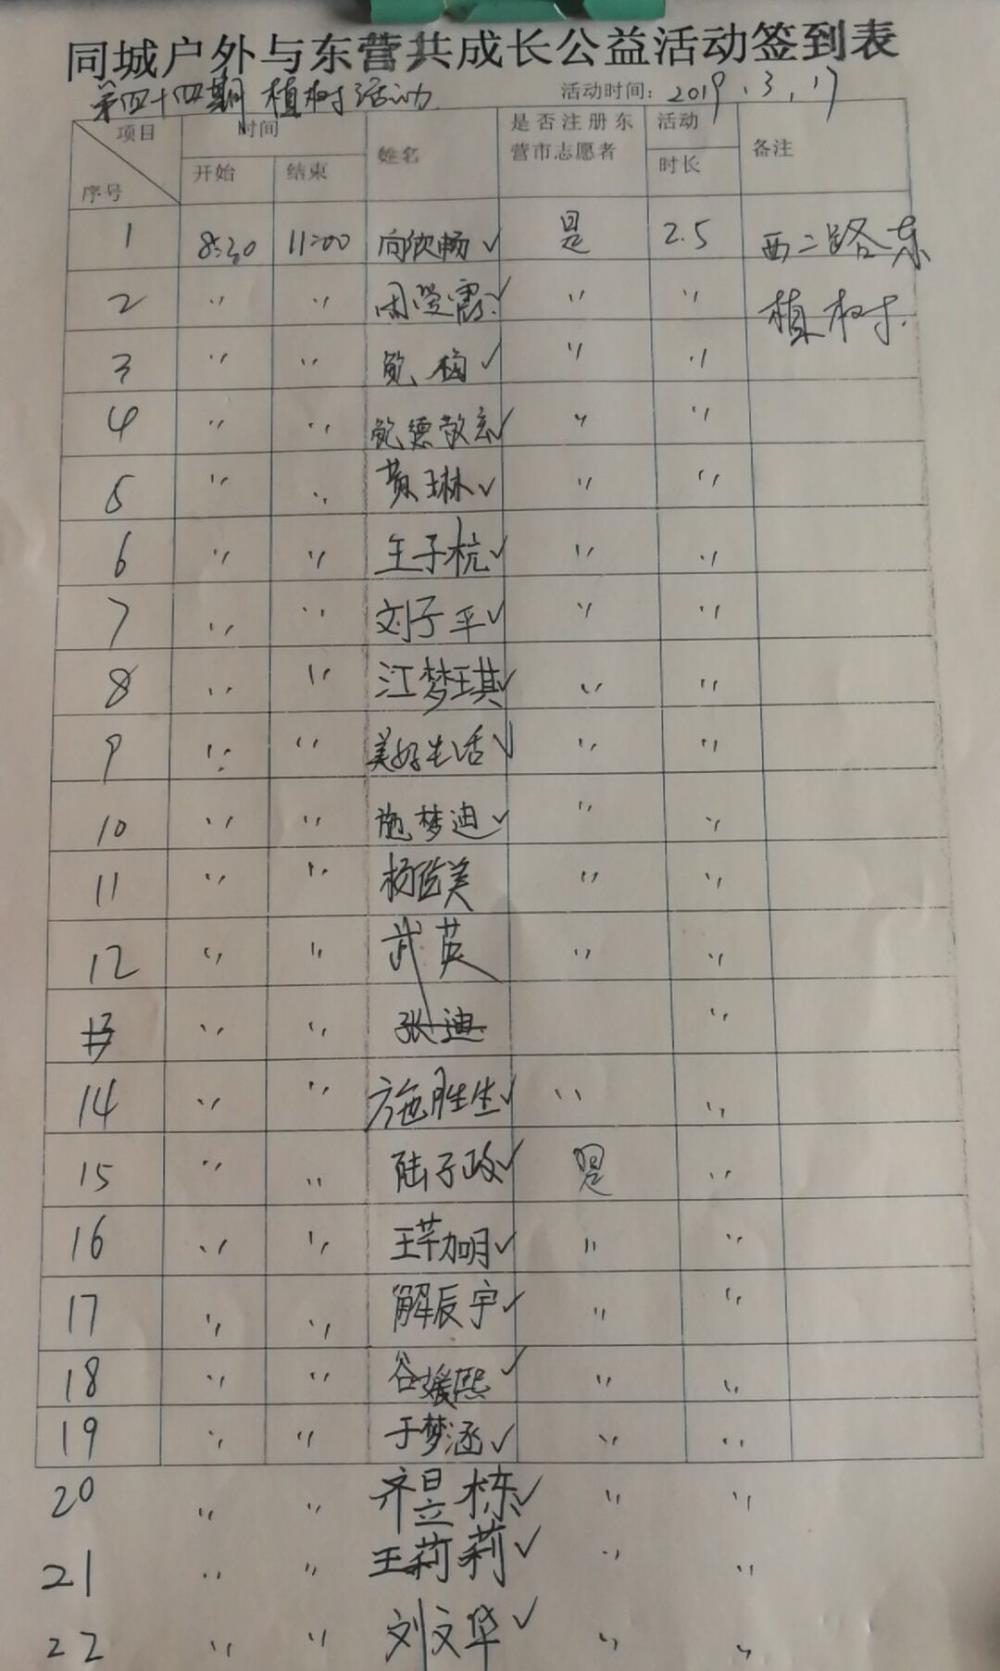 同城户外与东营共成长公益活动签到表
第四十四期 植树活动 活动时间：2019.3.17
项目 时间 姓名 是否注册东营市志愿者 活动时长 备注
序号 开始 结束
1 8:30 11:00 向欣畅 ✓ 是 2.5 西二路东
2 〃 〃 ✓ 〃 〃 植树.
3 〃 〃 鲍梅 ✓ 〃 〃
4 〃 〃 鲍德敬玄 ✓ 〃 〃
5 〃 〃 黄琳 ✓ 〃 〃
6 〃 〃 王子杭 ✓ 〃 〃
7 〃 〃 刘子平 ✓ 〃 〃
8 〃 〃 江梦琪 ✓ 〃 〃
9 〃 〃 美好生活 ✓ 〃 〃
10 〃 〃 施梦迪 ✓ 〃 〃
11 〃 〃 杨美 〃 〃
12 〃 〃 武英 〃 〃
13 〃 〃 张迪 〃
14 〃 〃 施胜生 ✓ 〃 〃
15 〃 〃 陆子政 ✓ 是 〃
16 〃 〃 王芊加明 ✓ 〃 〃
17 〃 〃 解辰宇 ✓ 〃 〃
18 〃 〃 谷媛熙 ✓ 〃 〃
19 〃 〃 于梦涵 ✓ 〃 〃
20 〃 〃 齐昱栋 ✓ 〃 〃
21 〃 〃 王莉莉 ✓ 〃 〃
22 〃 〃 刘文华 ✓ 〃 〃